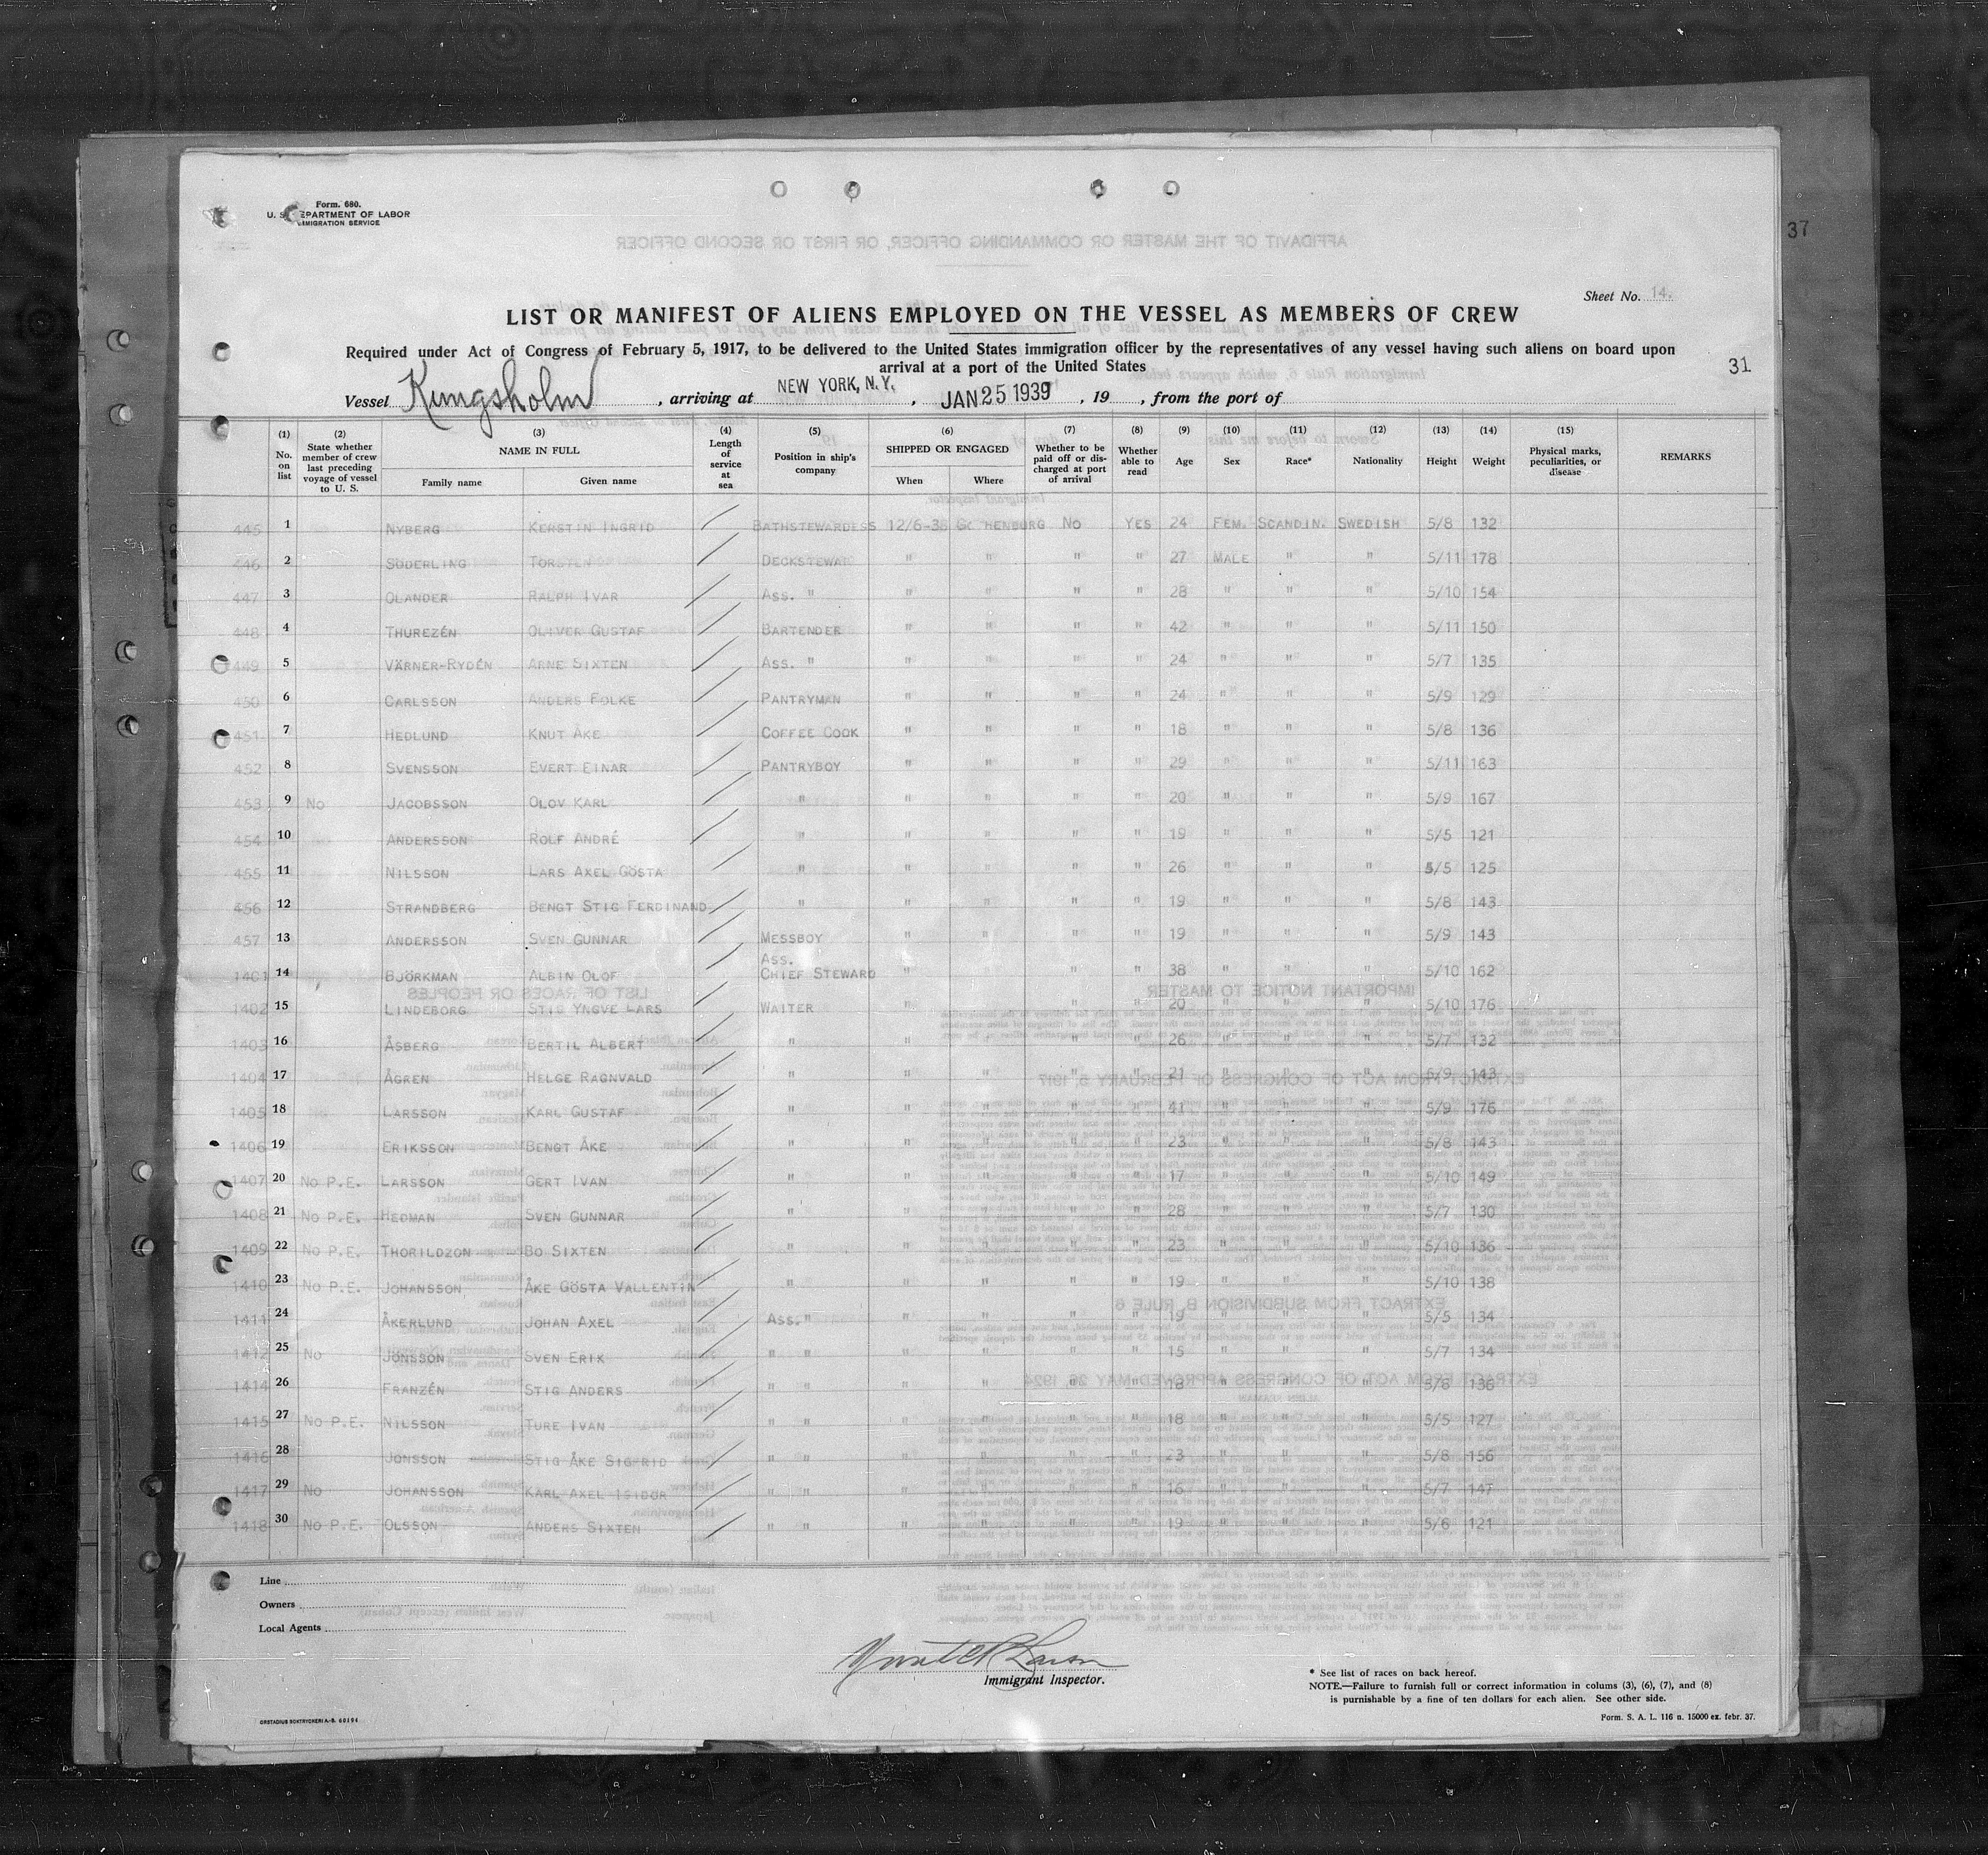 Form. 680.
U. S. DEPARTMENT OF LABOR
IMMIGRATION SERVICE
37
Sheet No. 14.
LIST OR MANIFEST OF ALIENS EMPLOYED ON THE VESSEL AS MEMBERS OF CREW
Required under Act of Congress of February 5, 1917, to be delivered to the United States immigration officer by the representatives of any vessel having such aliens on board upon
arrival at a port of the United States
31
Vessel Kungsholm, arriving at NEW YORK, N.Y., JAN 25 1939, 19 , from the port of
(1) No. on list (2) State whether member of crew last preceding voyage of vessel to U. S. (3) NAME IN FULL Family name Given name (4) Length of service at sea (5) Position in ship's company (6) SHIPPED OR ENGAGED When Where (7) Whether to be paid off or discharged at port of arrival (8) Whether able to read (9) Age (10) Sex (11) Race* (12) Nationality (13) Height (14) Weight (15) Physical marks, peculiarities, or disease REMARKS
445 1 NYBERG KERSTIN INGRID BATHSTEWARDESS 12/6-38 GOTHENBURG NO YES 24 FEM. SCANDIN. SWEDISH 5/8 132
446 2 SÖDERLING TORSTEN DECKSTEWA " " " " 27 MALE " " 5/11 178
447 3 OLANDER RALPH IVAR ASS. " " " " " 28 " " " 5/10 154
448 4 THUREZÉN OLIVER GUSTAF BARTENDER " " " " 42 " " " 5/11 150
449 5 VÄRNER-RYDÉN ARNE SIXTEN ASS. " " " " " 24 " " " 5/7 135
450 6 CARLSSON ANDERS FOLKE PANTRYMAN " " " " 24 " " " 5/9 129
451 7 HEDLUND KNUT ÅKE COFFEE COOK " " " " 18 " " " 5/8 136
452 8 SVENSSON EVERT EINAR PANTRYBOY " " " " 29 " " " 5/11 163
453 9 NO JACOBSSON OLOV KARL " " " " " 20 " " " 5/9 167
454 10 ANDERSSON ROLF ANDRÉ " " " " " 19 " " " 5/5 121
455 11 NILSSON LARS AXEL GÖSTA " " " " " 26 " " " 5/5 125
456 12 STRANDBERG BENGT STIG FERDINAND " " " " " 19 " " " 5/8 143
457 13 ANDERSSON SVEN GUNNAR MESSBOY " " " " 19 " " " 5/9 143
1401 14 BJÖRKMAN ALBIN OLOF ASS. CHIEF STEWARD " " " " 38 " " " 5/10 162
1402 15 LINDEBORG STIG YNGVE LARS WAITER " " " " 20 " " " 5/10 176
1403 16 ÅSBERG BERTIL ALBERT " " " " " 26 " " " 5/7 132
1404 17 ÅGREN HELGE RAGNVALD " " " " " 21 " " " 5/9 143
1405 18 LARSSON KARL GUSTAF " " " " " 41 " " " 5/9 176
1406 19 ERIKSSON BENGT ÅKE " " " " " 23 " " " 5/8 143
1407 20 NO P.E. LARSSON GERT IVAN " " " " " 17 " " " 5/10 149
1408 21 NO P.E. HEDMAN SVEN GUNNAR " " " " " 28 " " " 5/7 130
1409 22 NO P.E. THORILDZON BO SIXTEN " " " " " 23 " " " 5/10 136
1410 23 NO P.E. JOHANSSON ÅKE GÖSTA VALLENTIN " " " " " 19 " " " 5/10 138
1411 24 ÅKERLUND JOHAN AXEL ASS. " " " " " 19 " " " 5/5 134
1412 25 NO JÖNSSON SVEN ERIK " " " " " " 15 " " " 5/7 134
1414 26 FRANZÉN STIG ANDERS " " " " " " 18 " " " 5/6 136
1415 27 NO P.E. NILSSON TURE IVAN " " " " " " 18 " " " 5/5 127
1416 28 JONSSON STIG ÅKE SIGFRID " " " " " " 23 " " " 5/8 156
1417 29 NO JOHANSSON KARL AXEL ISIDOR " " " " " " 16 " " " 5/7 147
1418 30 NO P.E. OLSSON ANDERS SIXTEN " " " " " " 19 " " " 5/6 121
Line
Owners
Local Agents
Immigrant Inspector.
* See list of races on back hereof.
NOTE.—Failure to furnish full or correct information in colums (3), (6), (7), and (8)
is purnishable by a fine of ten dollars for each alien. See other side.
ORSTADIUS BOKTRYCKERI A.-B. 60194
Form. S. A. L. 116 n. 15000 ex. febr. 37.